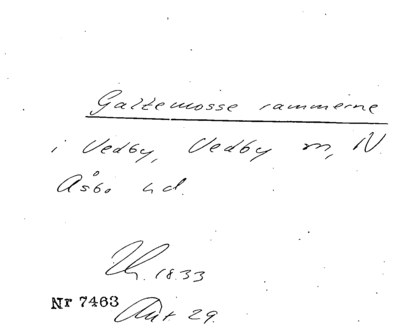 Galtemosse rammerne
i Vedby, Vedby m, N.
Åsbo hd.
1833
Nr 7463
Akt 29.